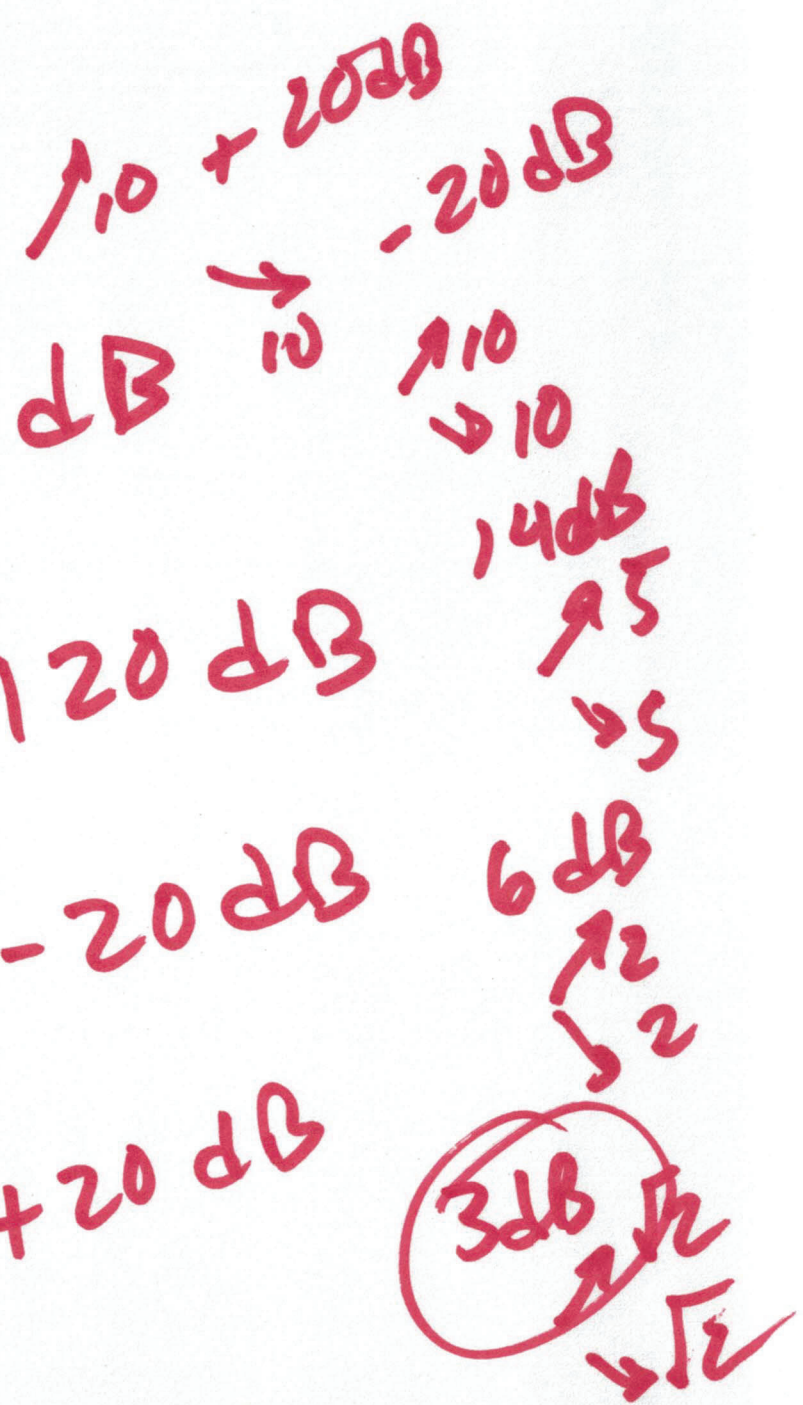 ↗10 + 20dB
→10 - 20dB
dB
↗10
↘10
14dB
↗5
↘5
120 dB
- 20 dB
6 dB
↗2
↘2
+ 20 dB
3dB
↗√2
↘√2